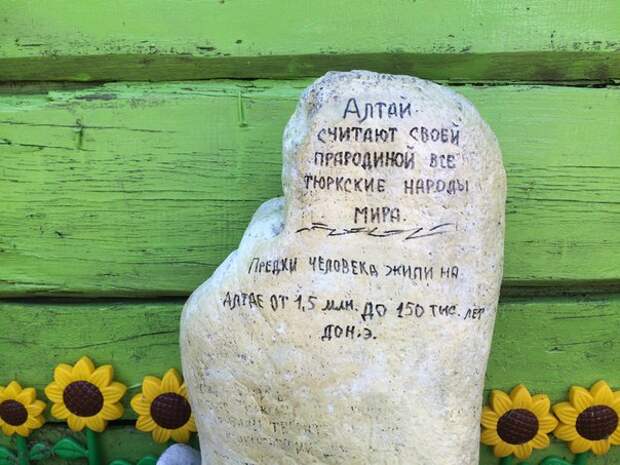 АЛТАЙ.
СЧИТАЮТ СВОЕЙ
ПРАРОДИНОЙ ВСЕ
ТЮРКСКИЕ НАРОДЫ
МИРА.
ПРЕДКИ ЧЕЛОВЕКА ЖИЛИ НА
АЛТАЕ ОТ 1,5 МЛН. ДО 150 ТЫС. ЛЕТ
ДО Н.Э.